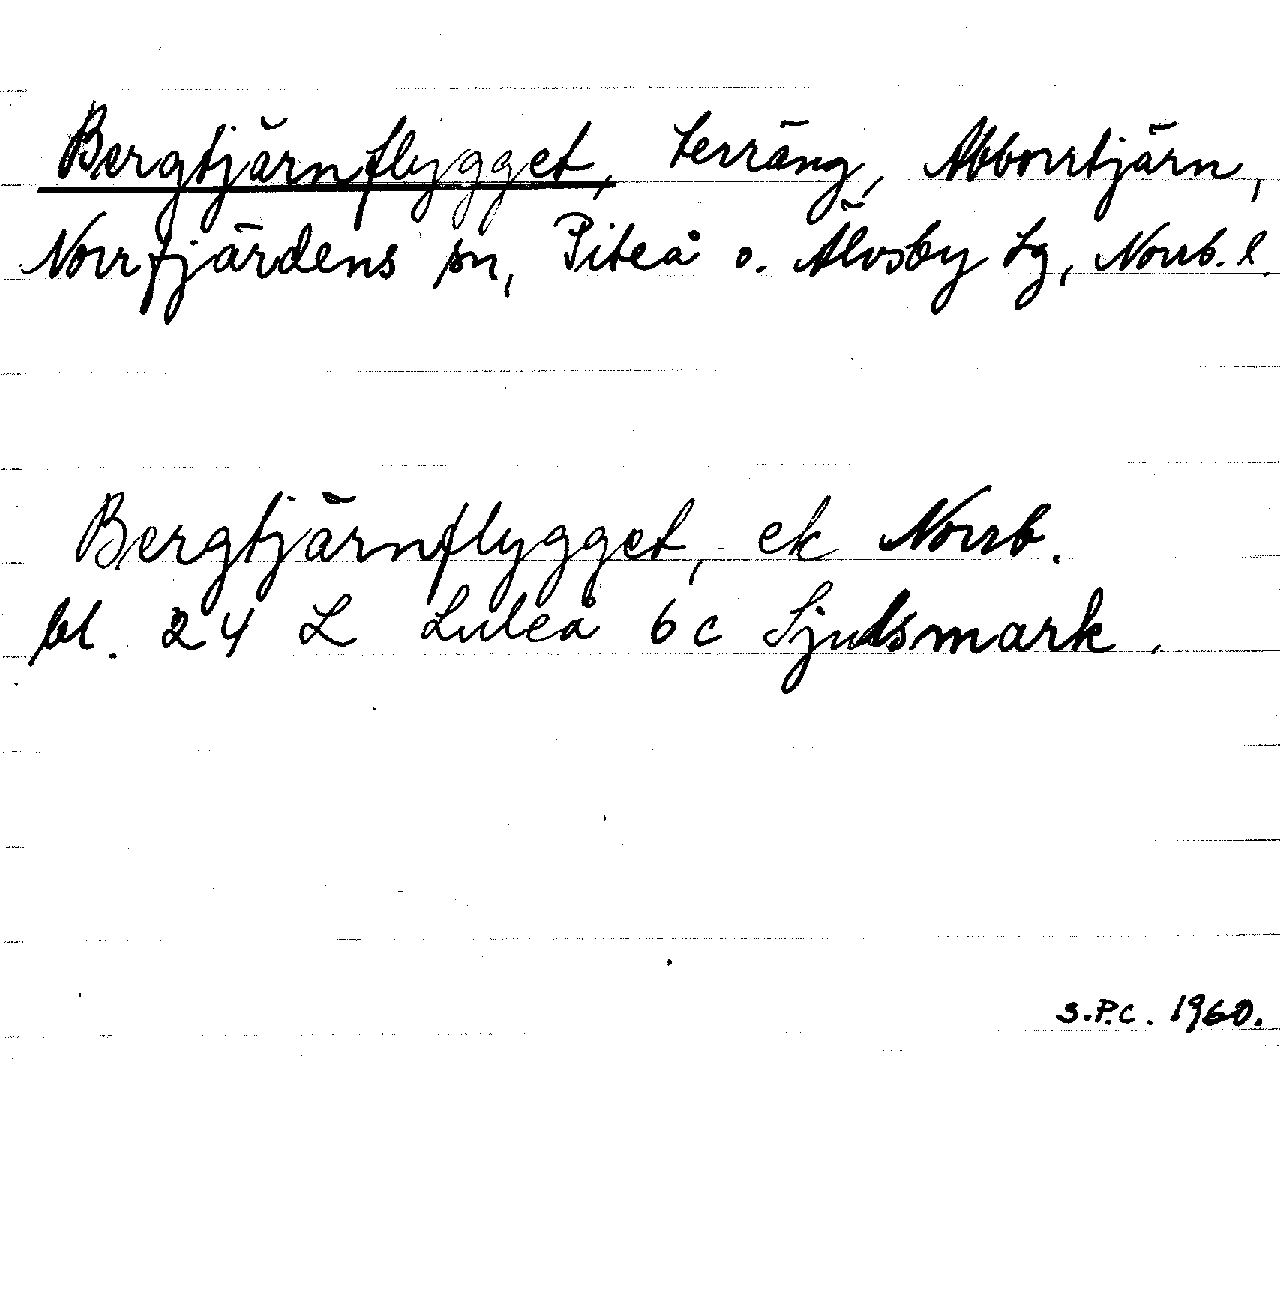 Bergtjärnflygget, terräng, Abborrtjärn,
Norrfjärdens sn, Piteå o. Älvsby tg, Norrb. l.
Bergtjärnflygget, ek Norrb.
bl. 24 L Luleå 6c Sjulsmark.
S.P.C. 1960.